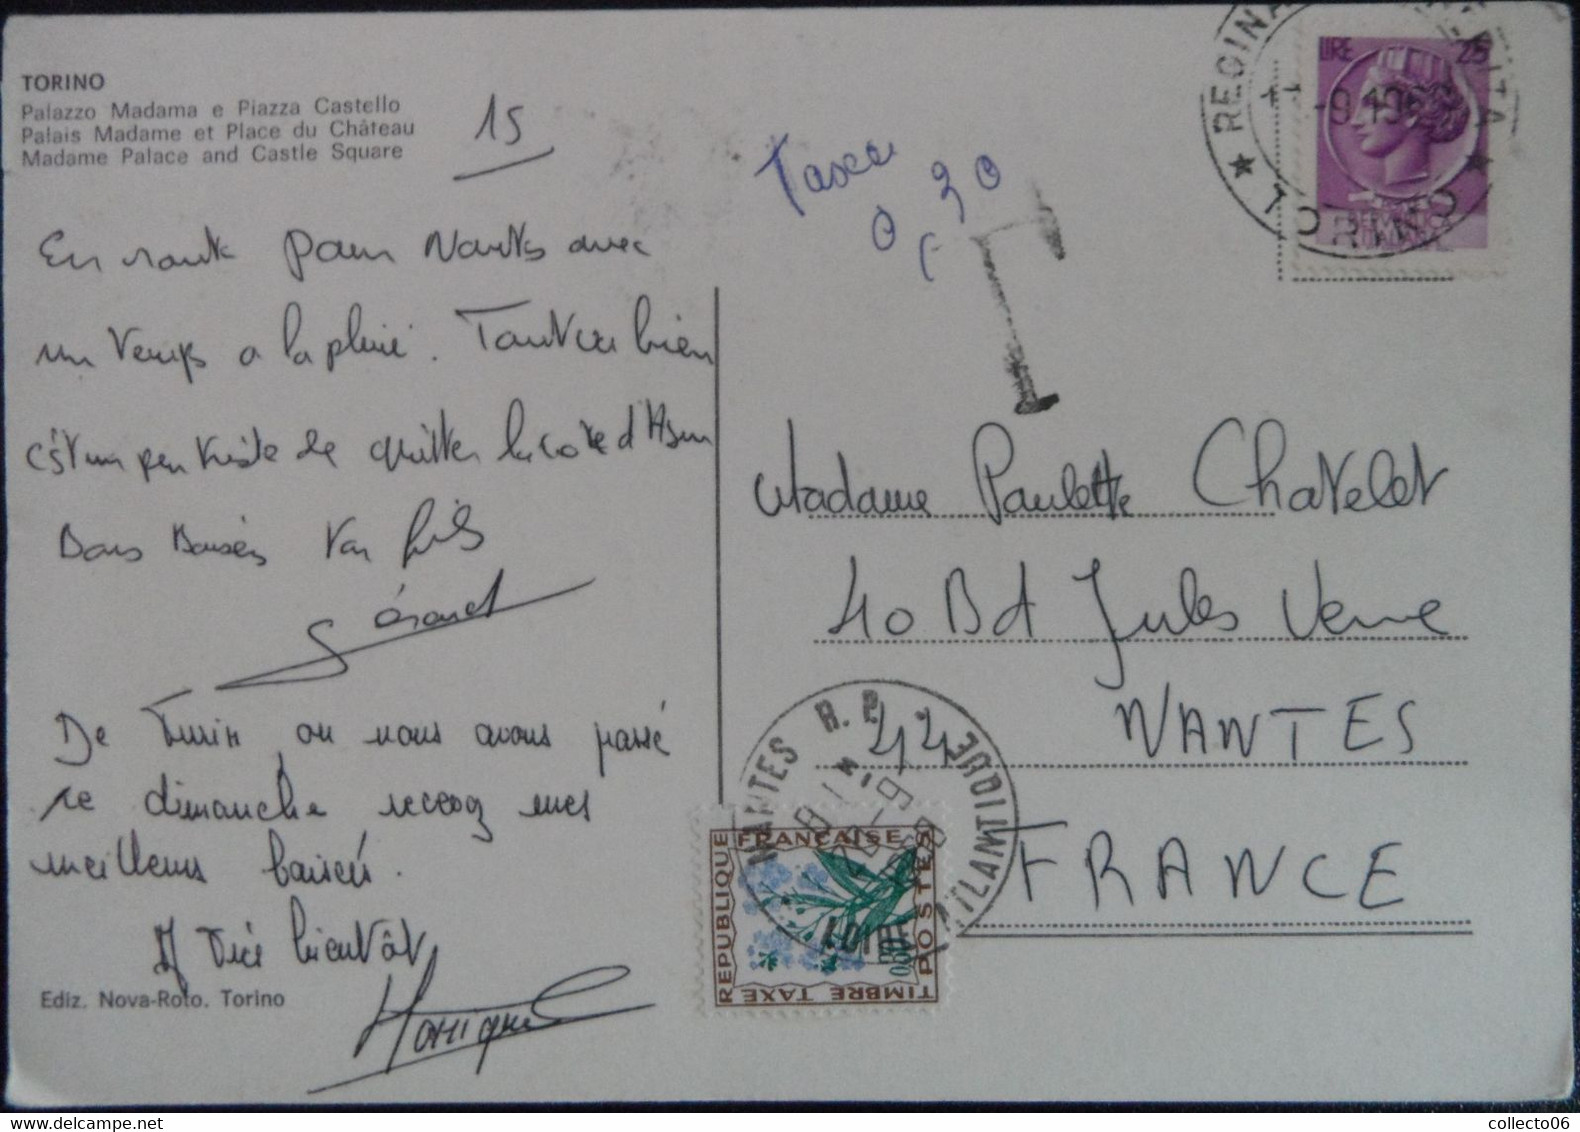 TORINO
Palazzo Madama e Piazza Castello
Palais Madame et Place du Château
Madame Palace and Castle Square
15
En route pour Nantes avec
un temps a la pluie. Tout va bien
c'est un peu triste de quitter la cote d'Azur
Bons Baisers Ton fils
Gérard
De Turin ou nous avons passé
le dimanche recevez mes
meilleurs baisers.
A très bientôt
Monique
Ediz. Nova-Roto. Torino
Taxe
0,30
T
REGINA MARGHERITA
TORINO
LIRE 25
Madame Paulette Chatelet
40 Bd Jules Verne
44 NANTES
FRANCE
NANTES R.P.
LOIRE ATLANTIQUE
REPUBLIQUE FRANÇAISE
POSTES
TIMBRE TAXE
0,30
collecto06
delcampe.net